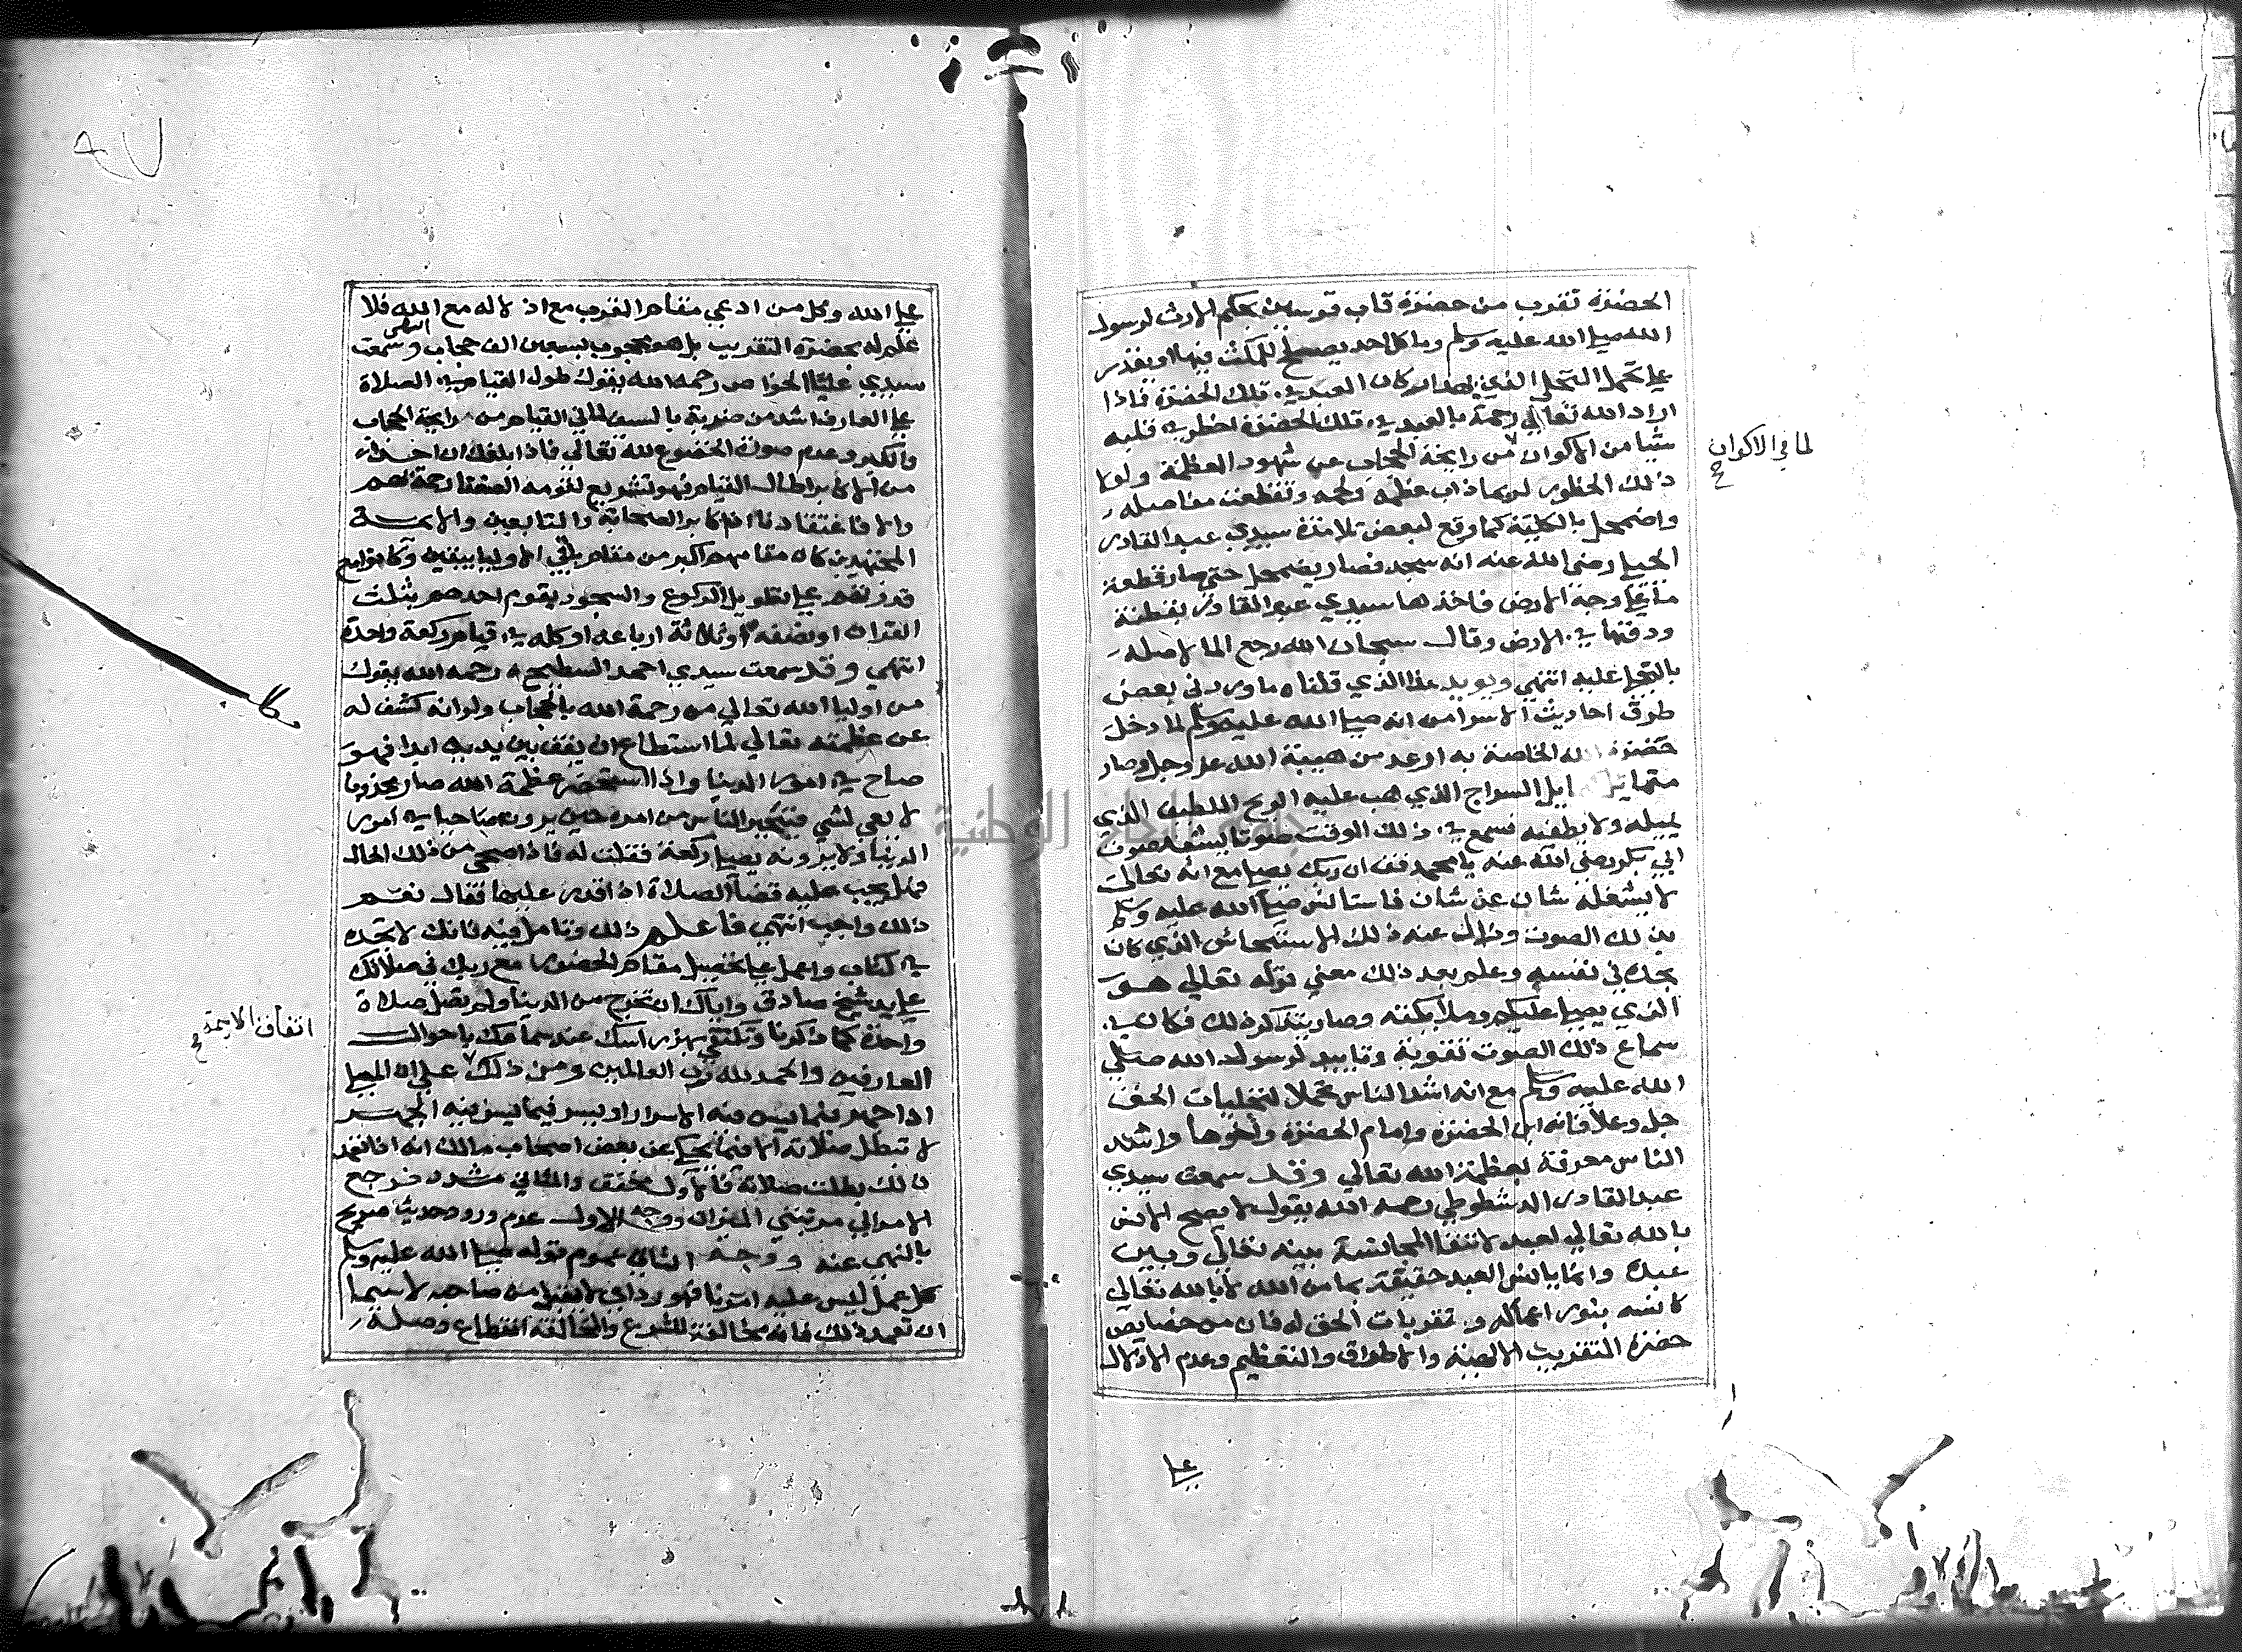 الحضرة تقرب من حضرة قاب قوسين بحكم الارث لرسول
الله صلي الله عليه وسلم وما كل احد يصلح للمكث فيها او يقدر
علي تحمل التجلي الذي يهد اركان العبد في تلك الحضرة فاذا
اراد الله تعالي رحمة بالعبد في تلك الحضرة اخطر في قلبه
شيا من الاكوان من رايحة الحجاب عن شهود العظمة ولولا
لما في الاكوان
ذلك الخطور لربما ذاب عظمه ولحمه وتقطعت مفاصله
واضمحل بالكلية كما وقع لبعض تلامذة سيدي عبد القادر
الجيلي رضي الله عنه انه سجد فصار يضمحل حتي صار قطعة
ماء علي وجه الارض فاخذها سيدي عبد القادر بقطنة
ودفنها في الارض وقال سبحان الله رجع الما لاصله
بالتجلي عليه انتهي ويويد هذا الذي قلناه ما ورد في بعض
طرق احاديث الاسرا من انه صلي الله عليه وسلم لما دخل
حضرة الله الخاصة به ارعد من هيبة الله عز وجل وصار
متمايل السراج الذي هب عليه الريح اللطيف الذي
يميله ولا يطفيه فسمع في ذلك الوقت صوتا يشبه صوت
ابي بكر رضي الله عنه يا محمد قف ان ربك يصلي مع انه تعالي
لا يشغله شان عن شان فاستانس صلي الله عليه وسلم
بذلك الصوت وزال عنه ذلك الاستيحاش الذي كان
يجده في نفسه وعلم بعد ذلك معني قوله تعالي هو
الذي يصلي عليكم وملائكته وصار يتذكر ذلك فكان في
سماع ذلك الصوت تقوية وتاييد لرسول الله صلي
الله عليه وسلم مع انه اشد الناس تحملا لتجليات الحق
جل وعلا فانه ابن الحضرة وامام الحضرة واخوها واشد
الناس معرفة بعظمة الله تعالي وقد سمعت سيدي
عبد القادر الدشطوطي رحمه الله يقول لا يصح الانس
بالله تعالي لعبد لانتفا المجانسة بينه تعالي وبين
عبده وانما يانس العبد حقيقة بما من الله لا بالله تعالي
كانسه بنور اعماله و تقريبات الحق له فان من خصايص
حضرة التقريب الالهية والاطراق والتعظيم وعدم الادلال
علي
علي الله وكل من ادعي مقام القرب مع ادلاله مع الله فلا
علم له بحضرة التقريب بل هو محجوب بسبعين الف حجاب انتهي وسمعت
سيدي عليا الخواص رحمه الله يقول طول القيام في الصلاة
علي العارف اشد من ضربه بالسيف لما في القيام من رايحة الحجاب
والكبر وعدم صورة الخضوع لله تعالي فاذا بلغك ان احدا
من الاكابر اطال القيام فهو تشريع لقومه الضعفا رحمة لهم
والا فاعتقادنا ان اكابر الصحابة والتابعين والايمة
المجتهدين كان مقامهم اكبر من مقام باقي الاوليا بيقين وكانوا مع
قدرتهم علي تطويل الركوع والسجود يقوم احدهم بثلث
القران او نصفه او ثلاثة ارباعه او كله في قيام ركعة واحدة
انتهي وقد سمعت سيدي احمد السطيحه رحمه الله يقول
من اوليا الله تعالي من رحمة الله بالحجاب ولو انه كشف له
عن عظمته تعالي لما استطاع ان يقف بين يديه ابدا فهو
صاح في امور الدنيا واذا استحضر عظمة الله صار مجذوبا
لا يعي لشي فيتحير الناس من امره حين يرونه صاحيا في امور
الدنيا ولا يرونه يصلي ركعة فقلت له فاذا صحي من ذلك الحال
فهل يجب عليه قضا الصلاة اذا قدر عليها فقال نعم
ذلك واجب انتهي فاعلم ذلك وتامل فيه فانك لا تجده
في كتاب واعمل علي تحصيل مقام الحضور مع ربك في صلاتك
علي يد شيخ صادق واياك ان تخرج من الدنيا ولم تصل صلاة
واحدة كما ذكرنا وتكتفي بهز راسك عند سماعك باحوال
العارفين والحمد لله رب العالمين ومن ذلك علي ان المصلي
اتفاق الايمة
اذا جهر فيما يسن فيه الاسرار او يسر فيما يسن فيه الجهر
لا تبطل صلاته الا فيما يحكي عن بعض اصحاب مالك انه اذا تعمد
ذلك بطلت صلاته فالاول مخفف والثاني مشدد فرجع
الامر الي مرتبتي الميزان ووجه الاول عدم ورود حديث صريح
بالنهي عنه ووجه الثاني عموم قوله صلي الله عليه وسلم
كل عمل ليس عليه امرنا فهو رد اي لا يقبل من صاحبه لا سيما
ان تعمد ذلك فانه مخالفة للشرع والمخالفة انقطاع وصله